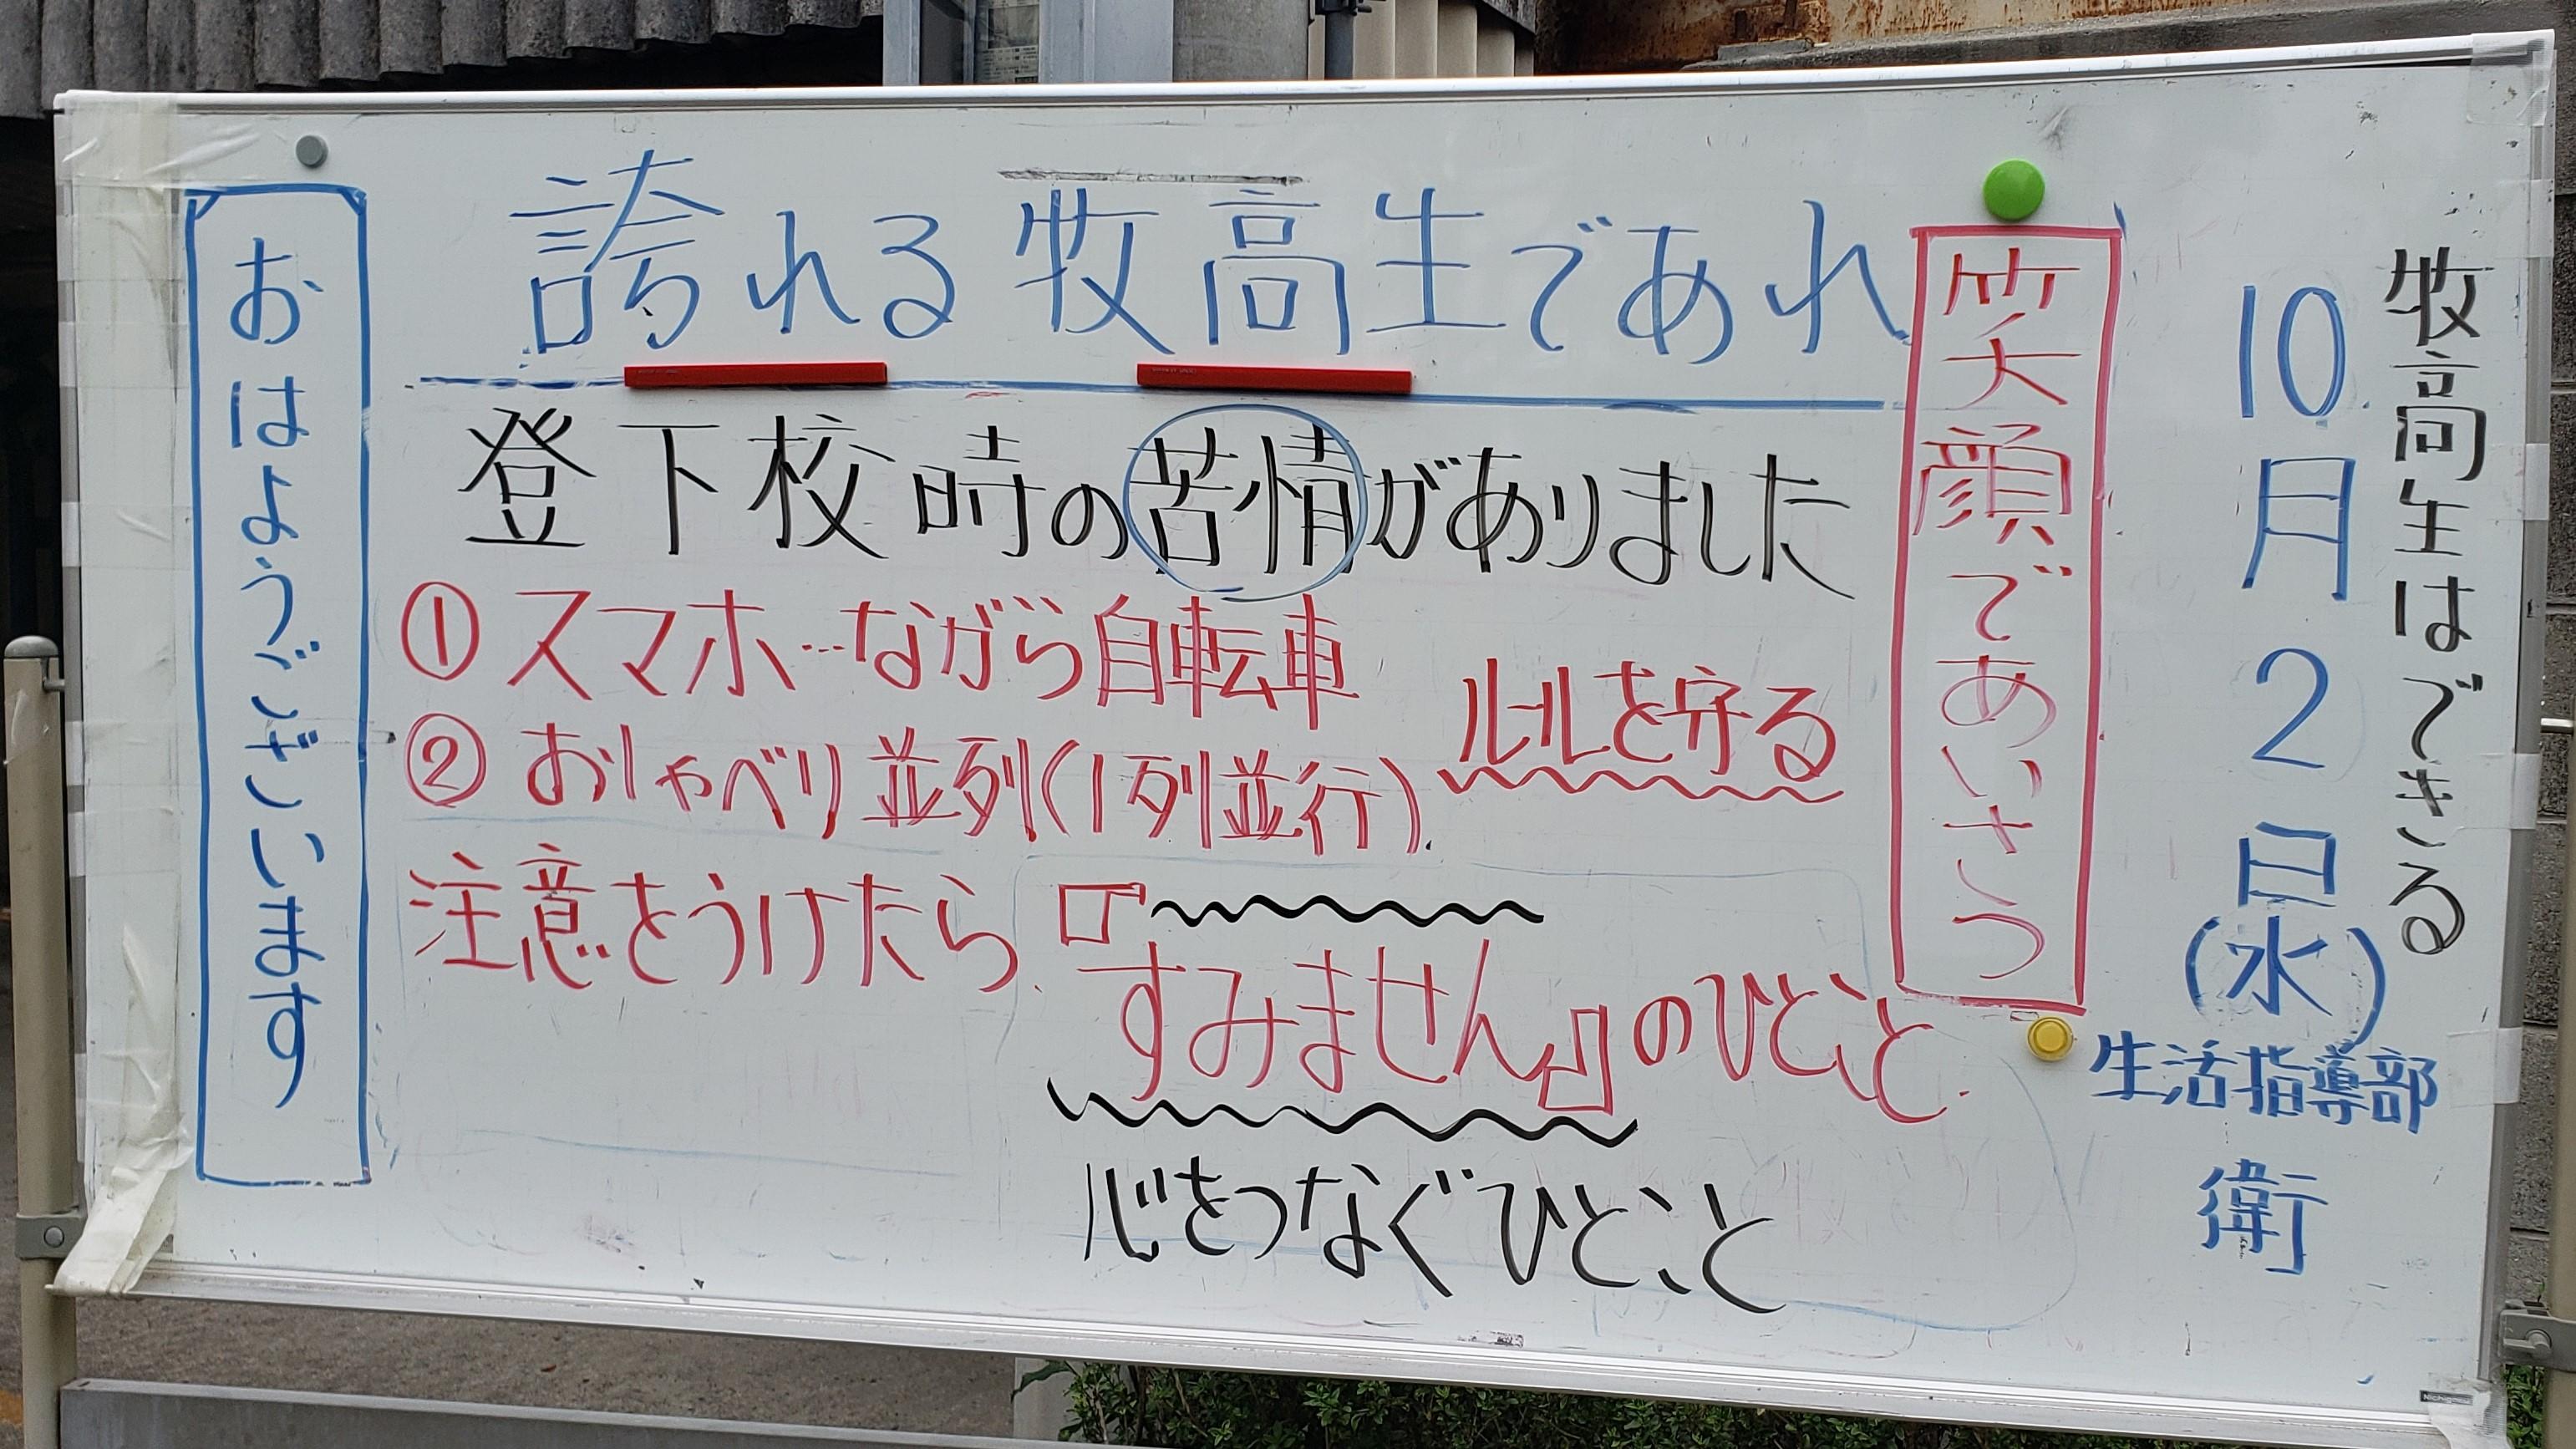 牧高生はできる
10月2日(水)
生活指導部
衛
笑顔であいさつ
誇れる牧高生であれ
登下校時の苦情がありました
① スマホ…ながら自転車
② おしゃべり並列(1列並行)
ルールを守る
注意をうけたら
『すみません』のひとこと
心をつなぐひとこと
おはようございます